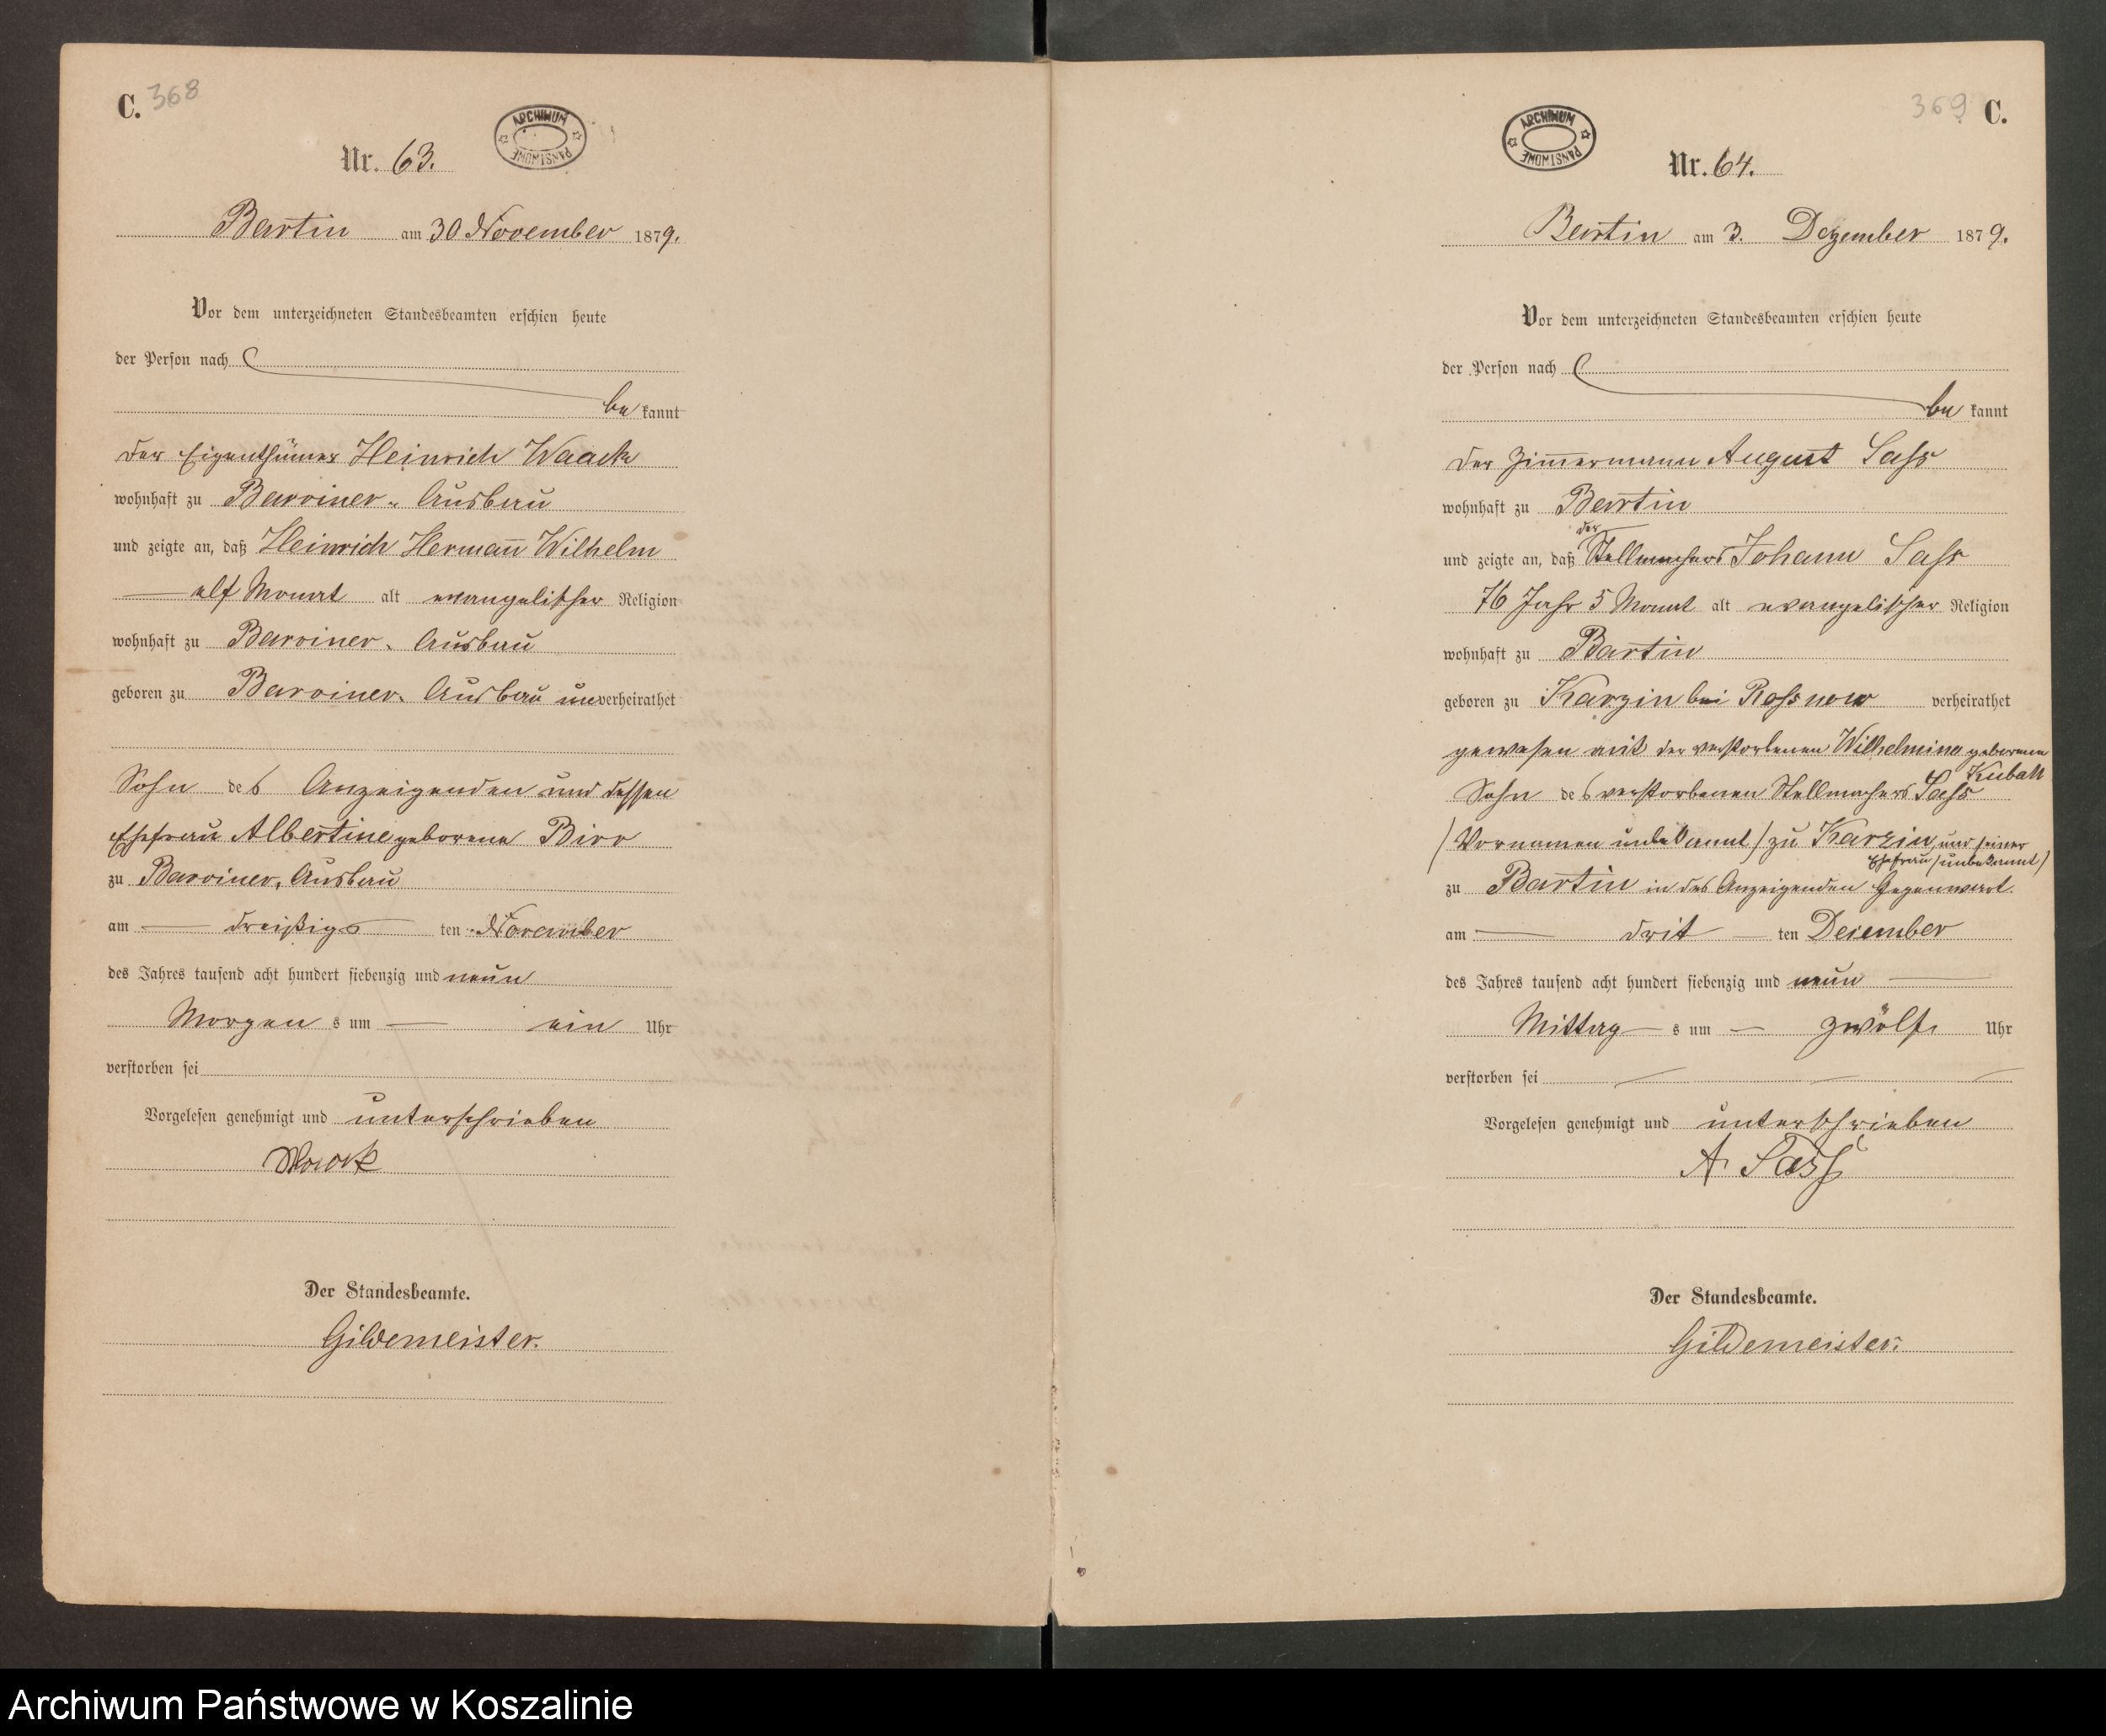 C. 368
ARCHIWUM PAŃSTWOWE
Nr. 63.
Bartin am 30 November 1879.
Vor dem unterzeichneten Standesbeamten erschien heute
der Person nach
be kannt
der Eigenthümer Heinrich Waack
wohnhaft zu Barviner-Ausbau
und zeigte an, daß Heinrich Hermañ Wilhelm
elf Monat alt evangelischer Religion
wohnhaft zu Barviner-Ausbau
geboren zu Barviner-Ausbau unverheirathet
Sohn des Anzeigenden und dessen
Ehefrau Albertine geborene Birr
zu Barviner-Ausbau
am dreißigs ten November
des Jahres tausend acht hundert siebenzig und neun
Morgen s um ein Uhr
verstorben sei
Vorgelesen genehmigt und unterschrieben
Waack
Der Standesbeamte.
Gildemeister.
369 C.
ARCHIWUM PAŃSTWOWE
Nr. 64.
Bartin am 3. Dezember 1879.
Vor dem unterzeichneten Standesbeamten erschien heute
der Person nach
be kannt
der Zim̄ermann August Saß
wohnhaft zu Bartin
der
und zeigte an, daß Stellmachers Johann Saß
76 Jahr 5 Monat alt evangelischer Religion
wohnhaft zu Bartin
geboren zu Karzin bei Roßnow verheirathet
gewesen mit der verstorbenen Wilhelmine geborene
Kuball
Sohn des verstorbenen Stellmachers Saß
/Vornamen unbekannt/ zu Karzin, und seiner
Ehefrau /unbekannt/
zu Bartin in des Anzeigenden Gegenwart.
am drit ten Dezember
des Jahres tausend acht hundert siebenzig und neun
Mittag s um zwölf Uhr
verstorben sei
Vorgelesen genehmigt und unterschrieben
A. Saß
Der Standesbeamte.
Gildemeister.
Archiwum Państwowe w Koszalinie